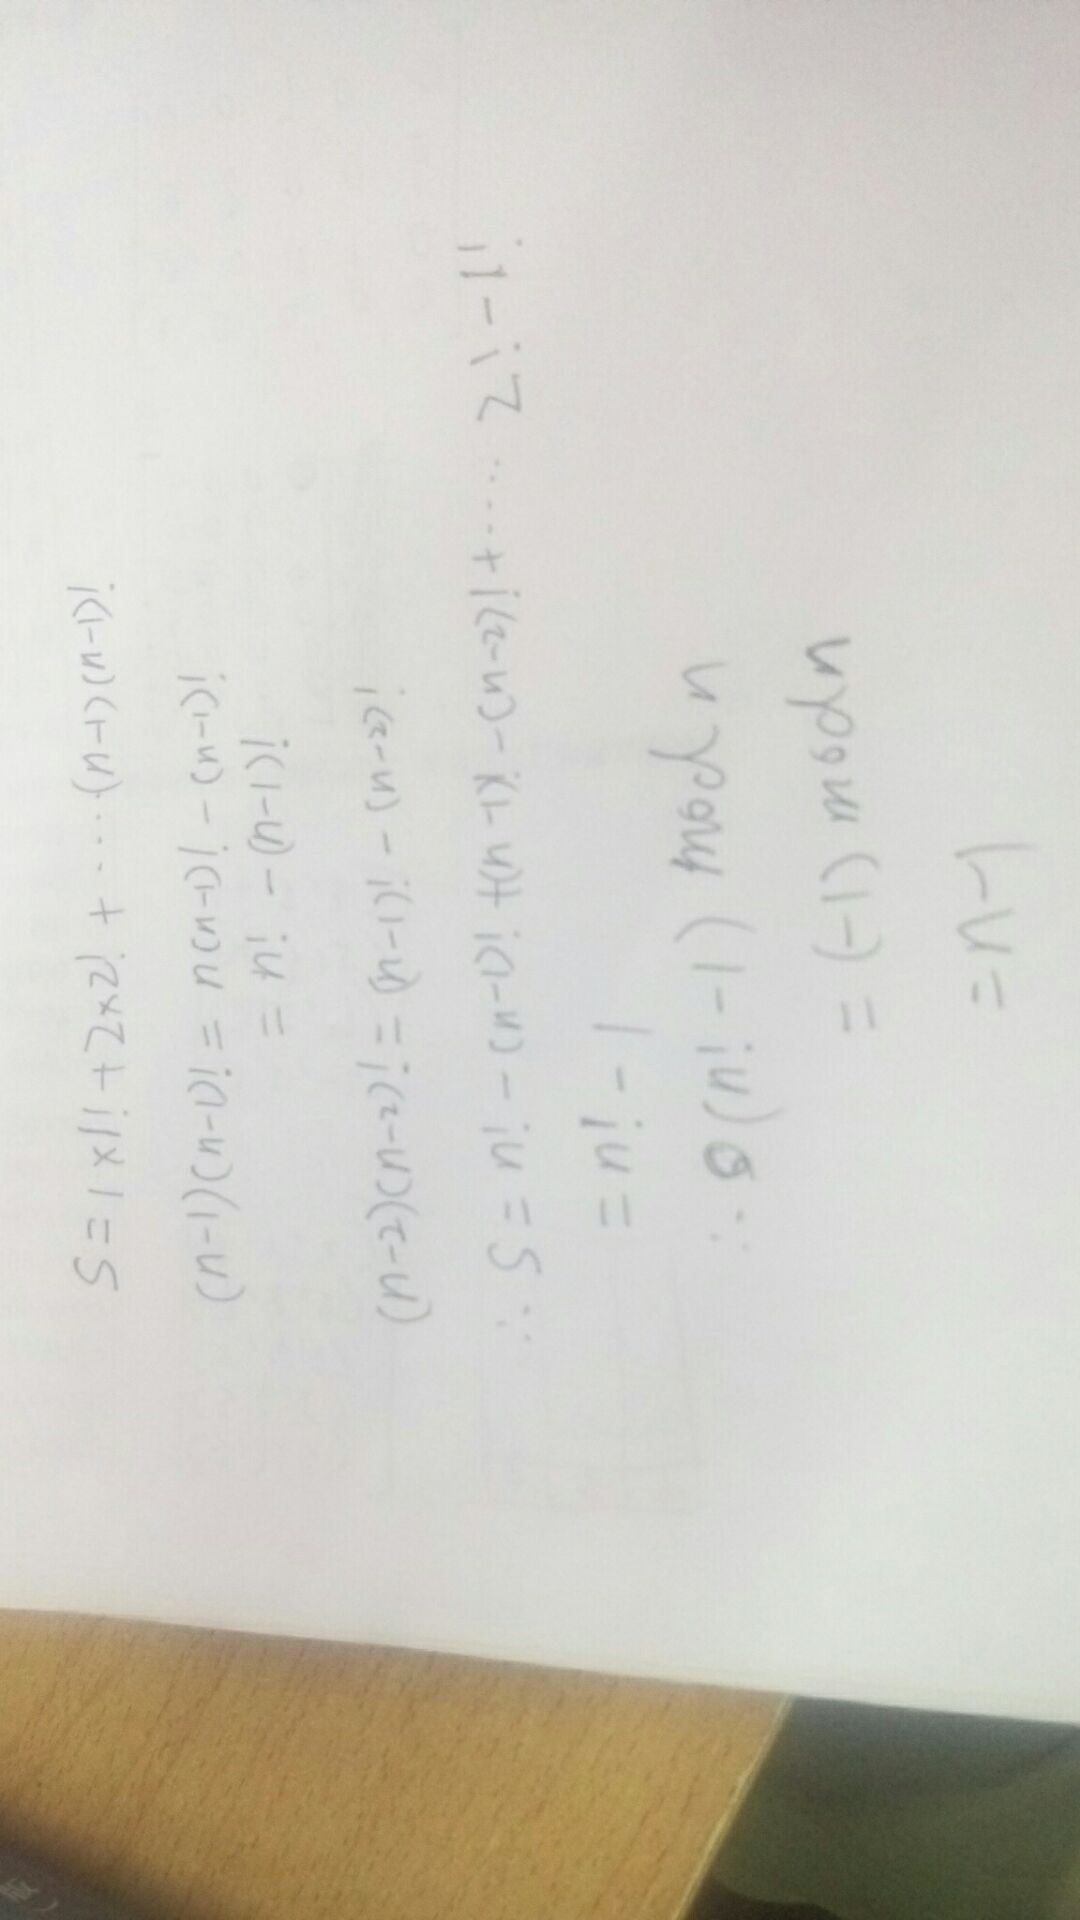 S = 1×1! + 2×2! + ····(n-1)(n-1)!
(n-1)(n-1)! = n(n-1)! - (n-1)!
= n! - (n-1)!
(n-2)(n-2)! = (n-1)! - (n-2)!
∴ S = n! - (n-1)! +(n-1)! - (n-2)! + ···· 2! - 1!
= n! - 1
∴ (n! - 1) mod n
= (-1) mod n
= n-1